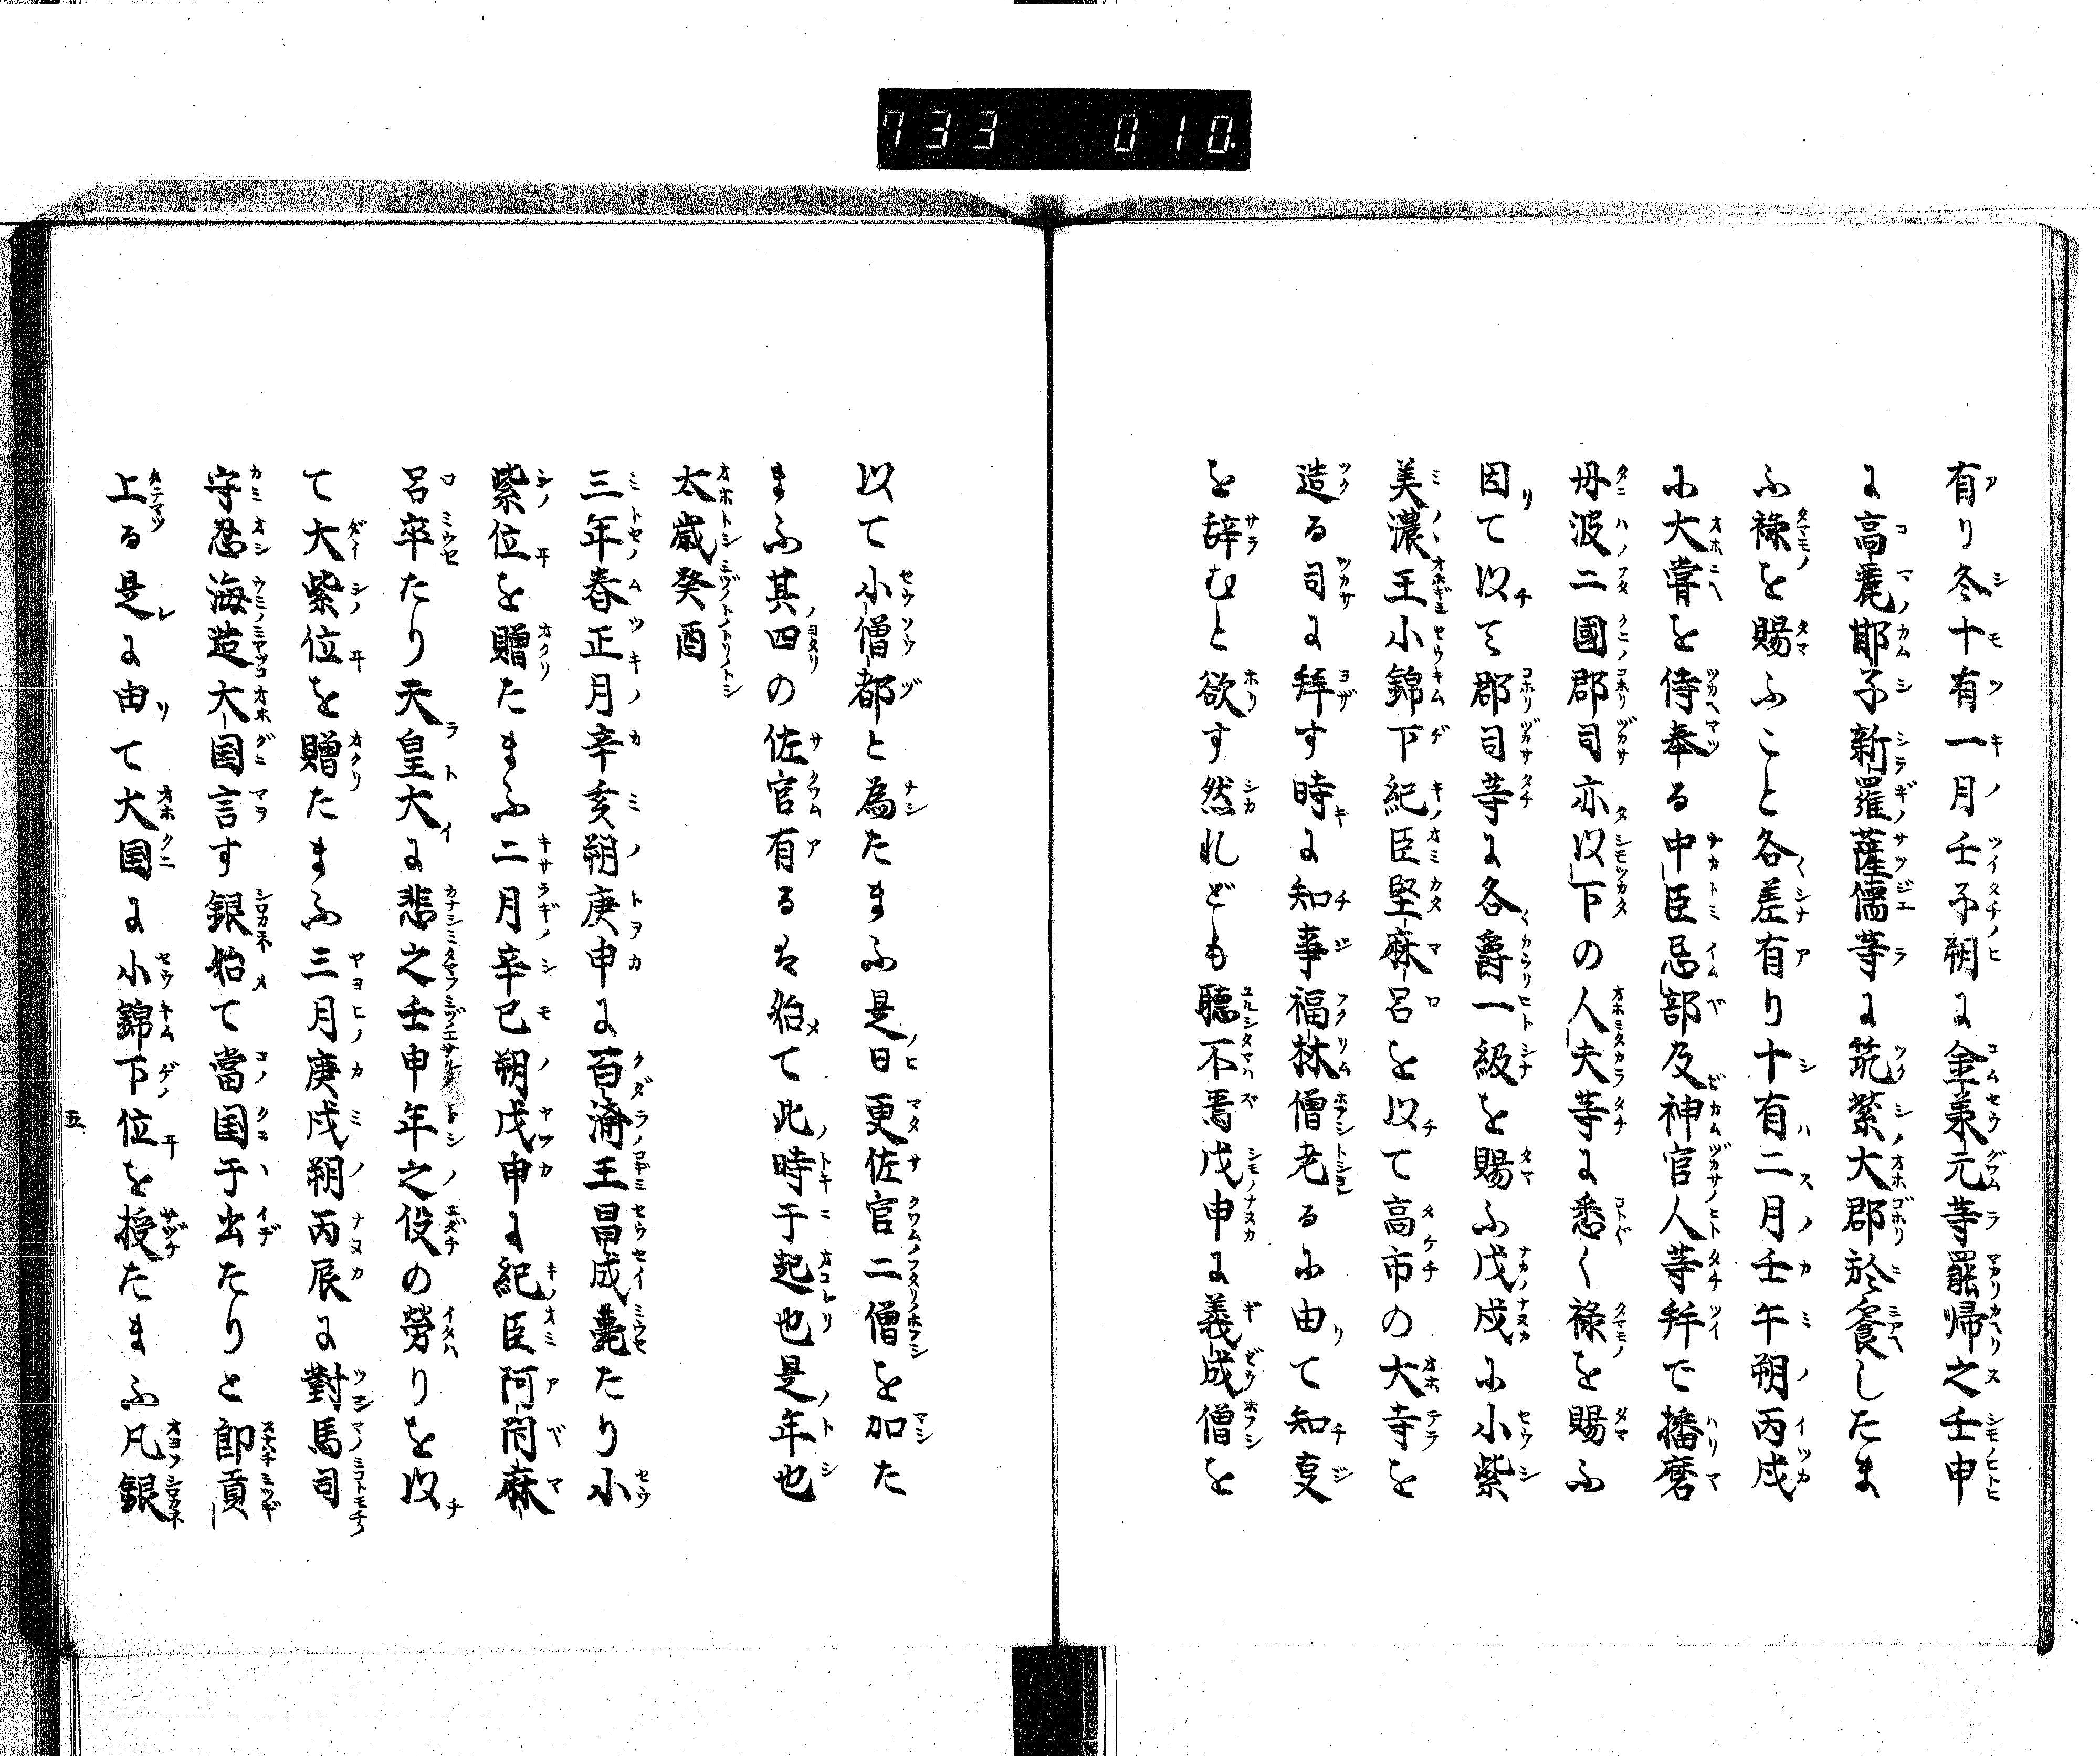 733 010.
有り冬十有一月壬子朔に金薬元等罷帰之壬申
に高麗邯子新羅薩儒等に筑紫大郡於飡したま
ふ禄を賜ふこと各差有り十有二月壬午朔丙戌
に大甞を侍奉る中臣忌部及神官人等并で播磨
丹波二國郡司亦以下の人夫等に悉く禄を賜ふ
因て以て郡司等に各爵一級を賜ふ戊戌に小紫
美濃王小錦下紀臣堅麻呂を以て高市の大寺を
造る司に拜す時に知事福林僧老るに由て知事
を辞むと欲す然れども聽不焉戊申に義成僧を
以て小僧都と為たまふ是日更佐官二僧を加た
まふ其四の佐官有るは始て此時于起也是年也
太歳癸酉
三年春正月辛亥朔庚申に百濟王昌成薨たり小
紫位を贈たまふ二月辛巳朔戊申に紀臣阿閇麻
呂卒たり天皇大に悲之壬申年之役の勞りを以
て大紫位を贈たまふ三月庚戌朔丙辰に對馬司
守忍海造大国言す銀始て當国于出たりと即貢
上る是に由て大国に小錦下位を授たまふ凡銀
五